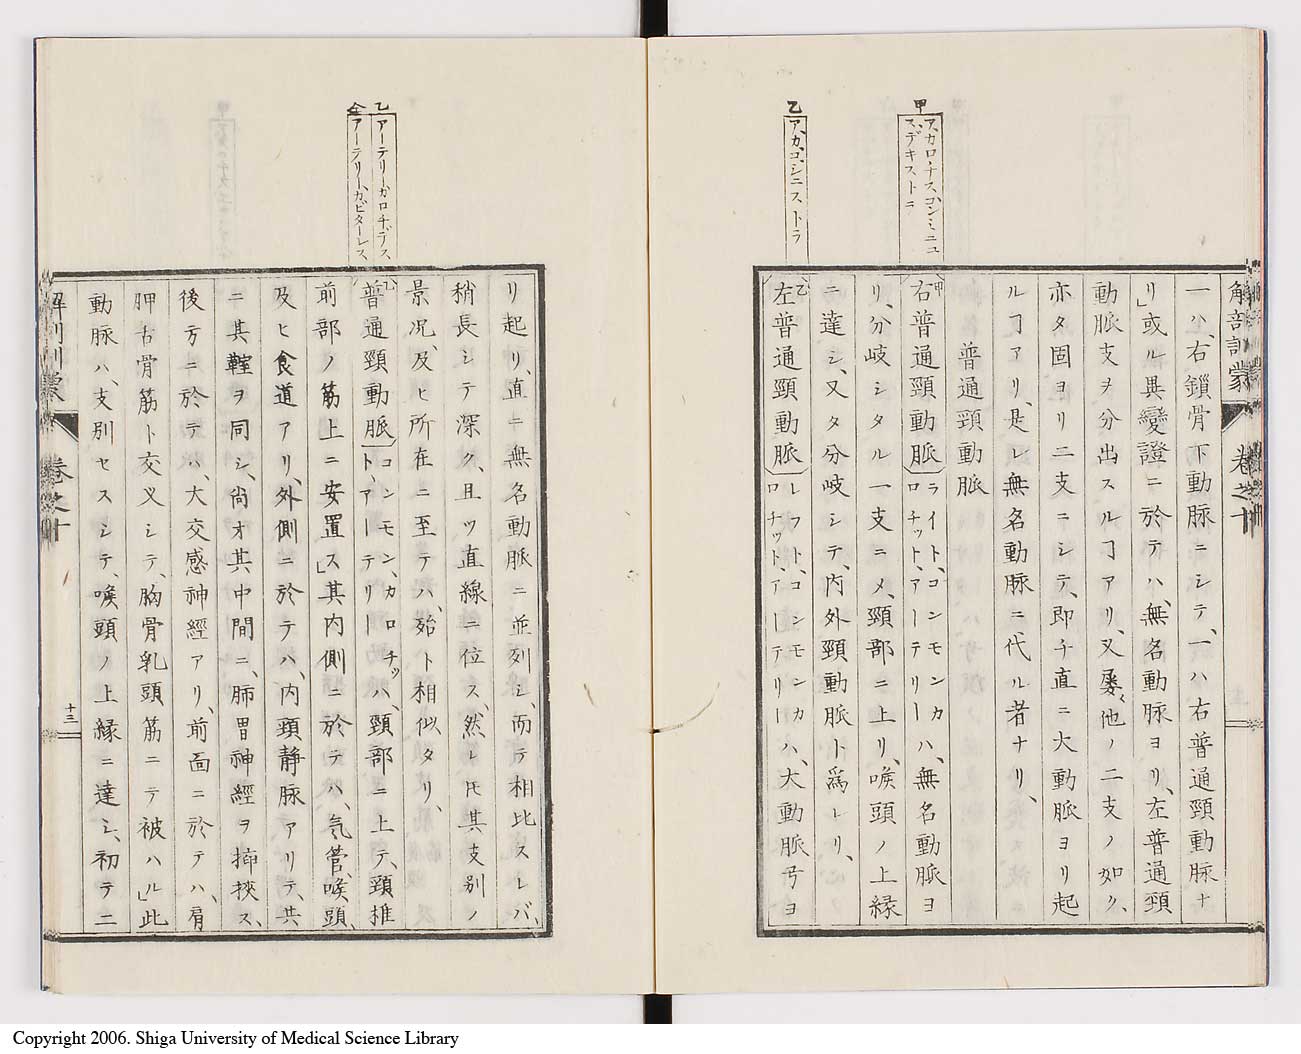 甲
ア、カロチス、コンミニユ
ス、デキストラ
乙
ア、カ、コ、シニストラ
解剖訓蒙 卷之十
一ハ、右鎖骨下動脈ニシテ、一ハ右普通頸動脈ナ
リ」或ル異變證ニ於テハ、無名動脈ヨリ、左普通頸
動脈支ヲ分出スルヿアリ、又屡〻他ノ二支ノ如ク、
亦タ固ヨリ二支ニシテ、即チ直ニ大動脈ヨリ起
ルヿアリ、是レ無名動脈ニ代ル者ナリ、
普通頸動脈
甲
右普通頸動脈ライト、コンモンカ、ロチット、アーテリーハ、無名動脈ヨ
リ、分岐シタル一支ニメ、頸部ニ上リ、喉頭ノ上縁
ニ達シ、又タ分岐シテ、内外頸動脈ト爲レリ、
乙
左普通頸動脈レフト、コンモンカロチット、アーテリーハ、大動脈弓ヨ
乙
アーテリー、カロチ、デス
仝
アーテリー、カピターレス
リ起リ、直ニ無名動脈ニ並列シ、而テ相比スレバ、
稍長シテ深ク、且ツ直線ニ位ス、然レ𪜈其支別ノ
景况、及ヒ所在ニ至テハ、殆ト相似タリ、
普通頸動脈コンモン、カロチット、アーテリーハ、頸部ニ上テ、頸椎
前部ノ筋上ニ安置ス」其内側ニ於テハ、気管、喉頭、
及ヒ食道アリ、外側ニ於テハ、内頸静脈アリテ、共
ニ其鞘ヲ同シ、尚オ其中間ニ、肺胃神經ヲ挿挾ス、
後方ニ於テハ、大交感神經アリ、前面ニ於テハ、肩
胛舌骨筋ト交叉シテ、胸骨乳頭筋ニテ被ハル」此
動脈ハ、支別セスシテ、喉頭ノ上縁ニ達シ、初テ二
解剖訓蒙 卷之十 十三
Copyright 2006. Shiga University of Medical Science Library